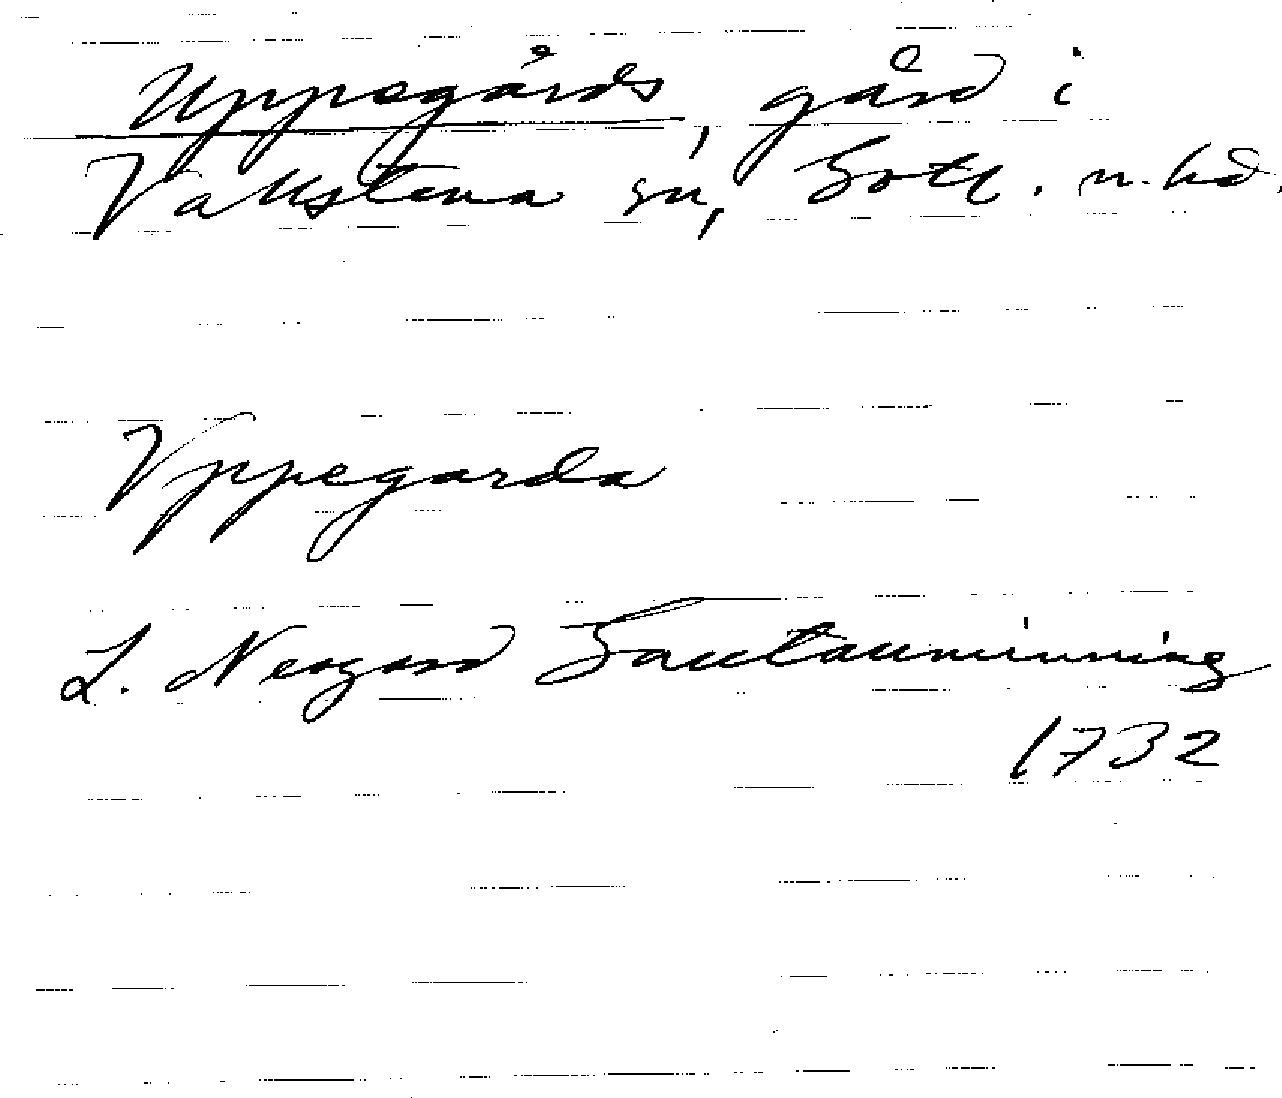 Uppegårds, gård i
Vallstena sn, Gotl. n. hd.
Vppegarda
L. Neogard Gautauminning
1732